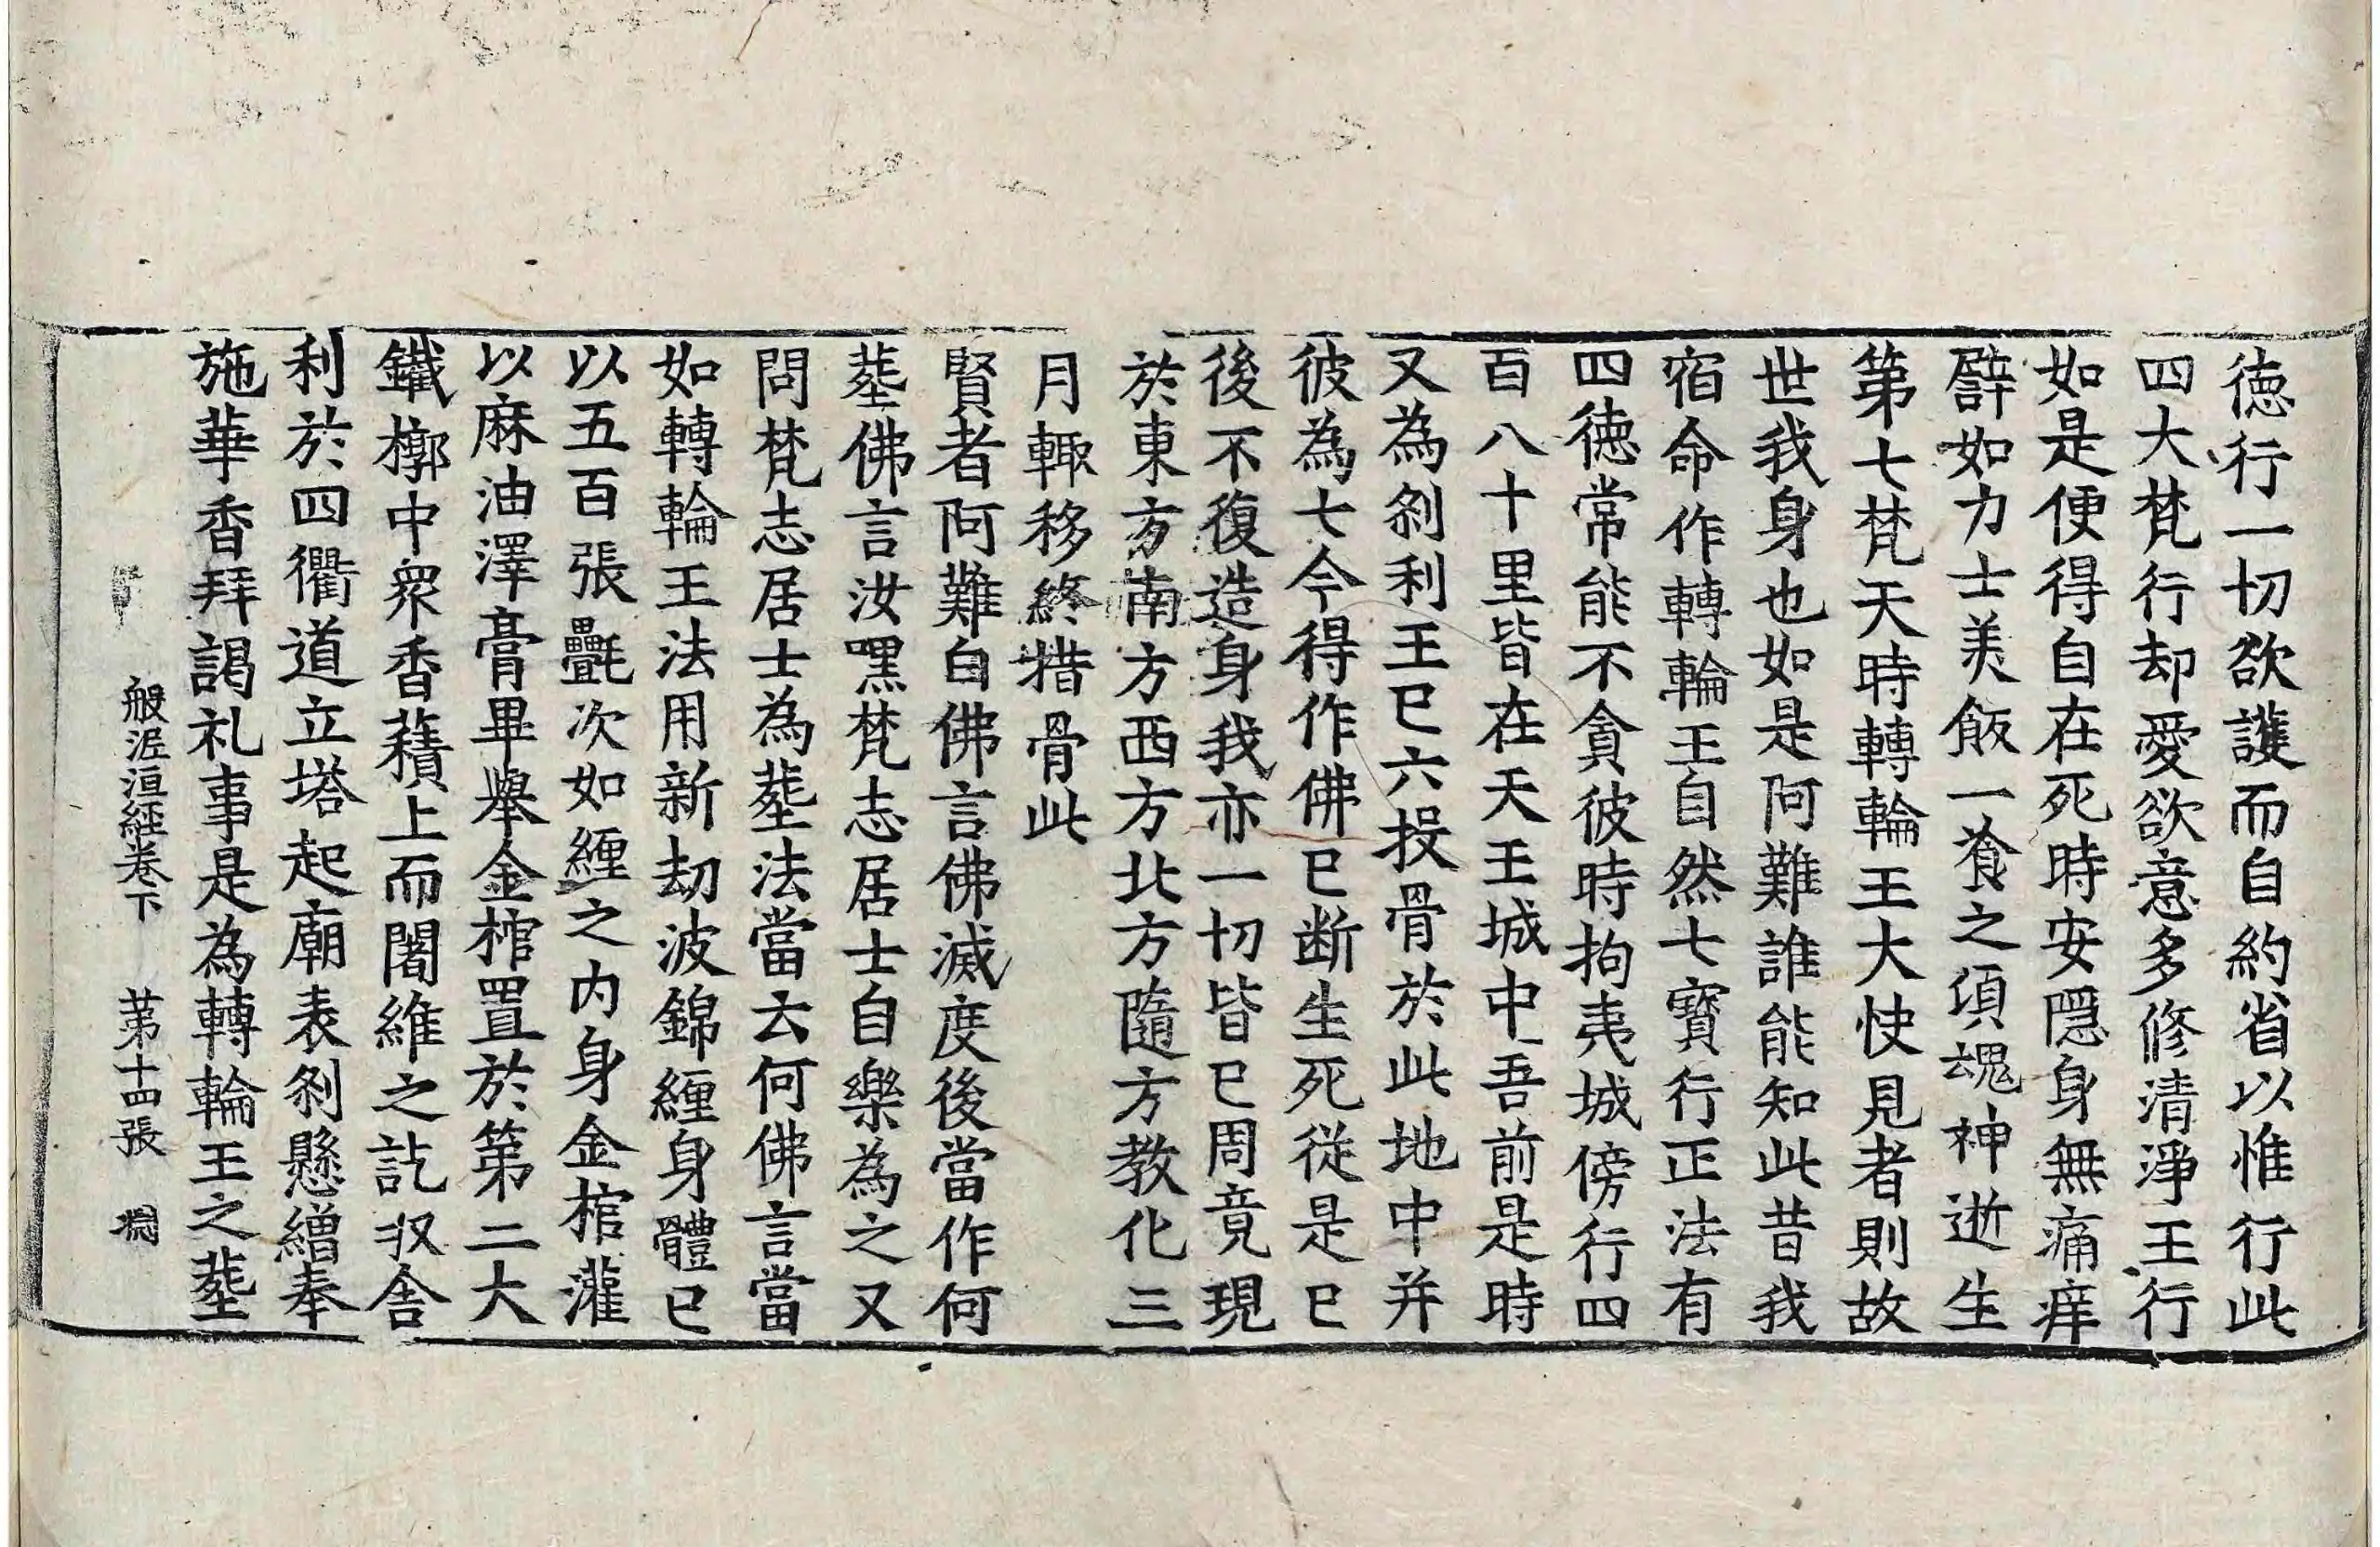 徳行一切欲護而自約省以惟行此
四大梵行却愛欲意多修清淨王行
如是便得自在死時安隱身無痛痒
譬如力士美飯一飡之頃魂神逝生
第七梵天時轉輪王大快見者則故
世我身也如是阿難誰能知此昔我
宿命作轉輪王自然七寳行正法有
四徳常能不貪彼時拘夷城傍行四
百八十里皆在天王城中吾前是時
又為剎利王已六投骨於此地中并
彼為七今得作佛已断生死從是已
後不復造身我亦一切皆已周竟現
於東方南方西方北方隨方教化三
月輙移終措骨此
賢者阿難白佛言佛滅度後當作何
塟佛言汝嘿梵志居士自樂為之又
問梵志居士為塟法當云何佛言當
如轉輪王法用新劫波錦纏身體已
以五百張㲲次如纏之内身金棺灌
以麻油澤膏畢舉金棺置於第二大
鐵槨中衆香䕒上而闍維之訖收舍
利於四衢道立塔起廟表剎懸繒奉
施華香拜謁礼事是為轉輪王之塟
般泥洹經卷下 第十四張